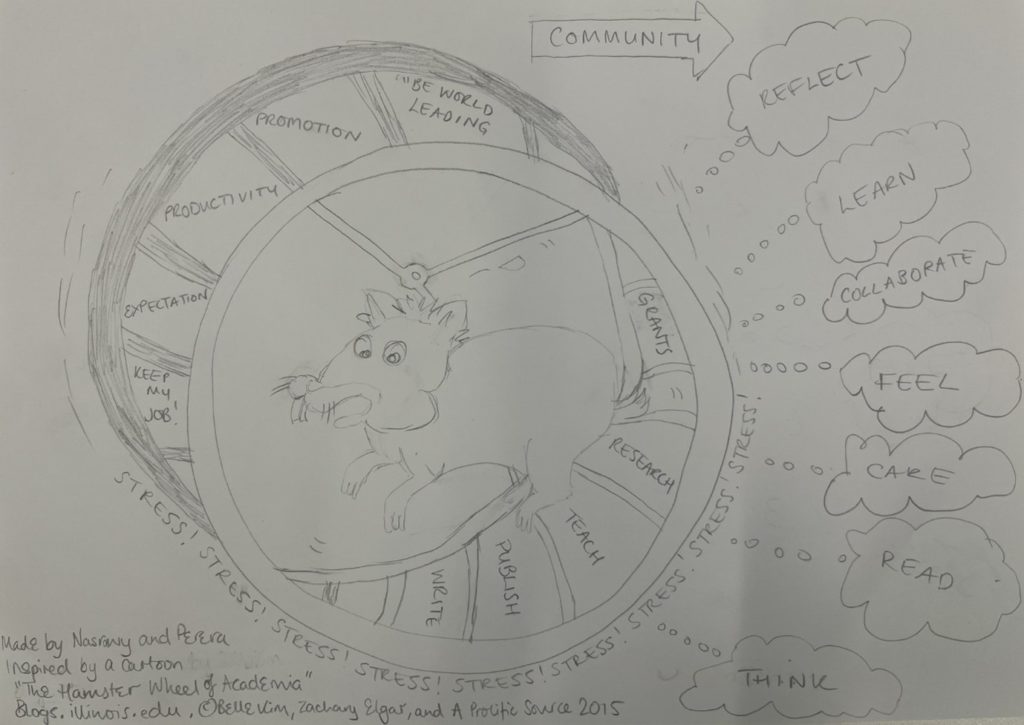 COMMUNITY
REFLECT
LEARN
COLLABORATE
FEEL
CARE
READ
THINK
"BE WORLD
LEADING
PROMOTION
PRODUCTIVITY
EXPECTATION
KEEP
MY
JOB!
GRANTS
RESEARCH
TEACH
PUBLISH
WRITE
STRESS! STRESS! STRESS! STRESS! STRESS! STRESS! STRESS! STRESS! STRESS!
Made by Nasrawy and Perera
Inspired by a Cartoon
"The Hamster Wheel of Academia"
Blogs.illinois.edu, ©Belle Kim, Zachary Elgar, and A Prolific Source 2015